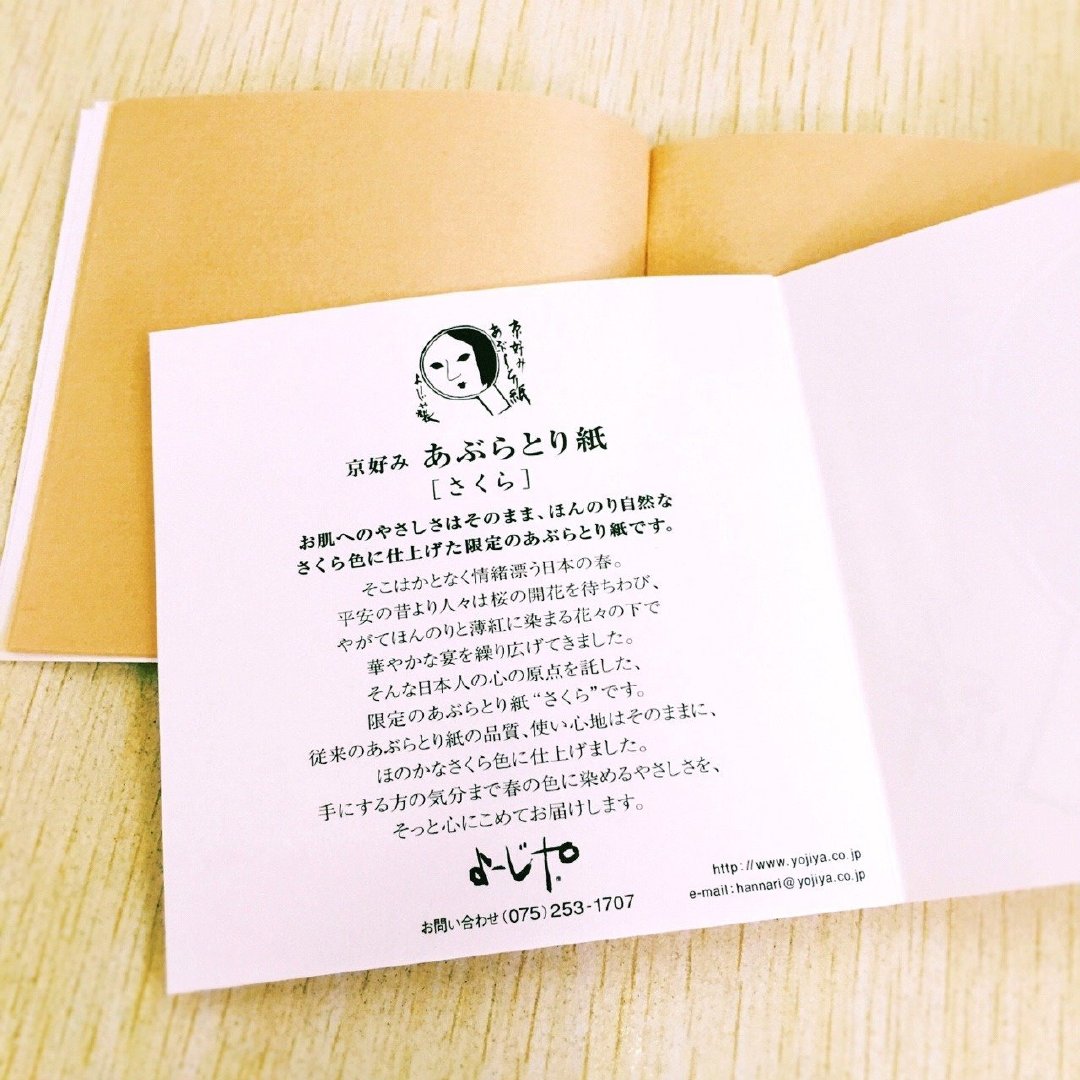 京好み
あぶらとり紙
よーじや製
京好み あぶらとり紙
[さくら]
お肌へのやさしさはそのまま、ほんのり自然な
さくら色に仕上げた限定のあぶらとり紙です。
そこはかとなく情緒漂う日本の春。
平安の昔より人々は桜の開花を待ちわび、
やがてほんのりと薄紅に染まる花々の下で
華やかな宴を繰り広げてきました。
そんな日本人の心の原点を託した、
限定のあぶらとり紙“さくら”です。
従来のあぶらとり紙の品質、使い心地はそのままに、
ほのかなさくら色に仕上げました。
手にする方の気分まで春の色に染めるやさしさを、
そっと心にこめてお届けします。
よーじや®
お問い合わせ(075)253-1707
http://www.yojiya.co.jp
e-mail:hannari@yojiya.co.jp